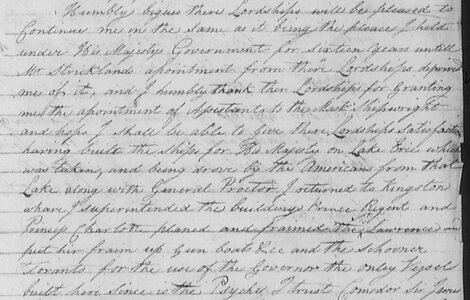 Humbly bigues there Lordships will be pleased to
Continues me in the same as it being the pleace I held
under His Majestys Government for Sixteen Years untill
Mr Stricklands apointment from there Lordsheps deprived
me of it, and I humbly thank ther Lordships for Granting
me the apointment of Assistant, to the Mastr Shipwright
and hops I shall be able to Give there Lordships Satisfaction
having built the Ships for His Majesty on Lake Erie which
was taken, and being drove by the Americans from that
Lake along with General Proctor, I returned to Kingston
whare I Superintended the building Prince Regent and
Princess Charlotte planed and fraimed The Lawrence and
put her fraim up Gun boats &ce and the Schooner
Toranto for the use of the Governor the only Vessel
built here Since is the Psyche, I trust Comodor Sir James